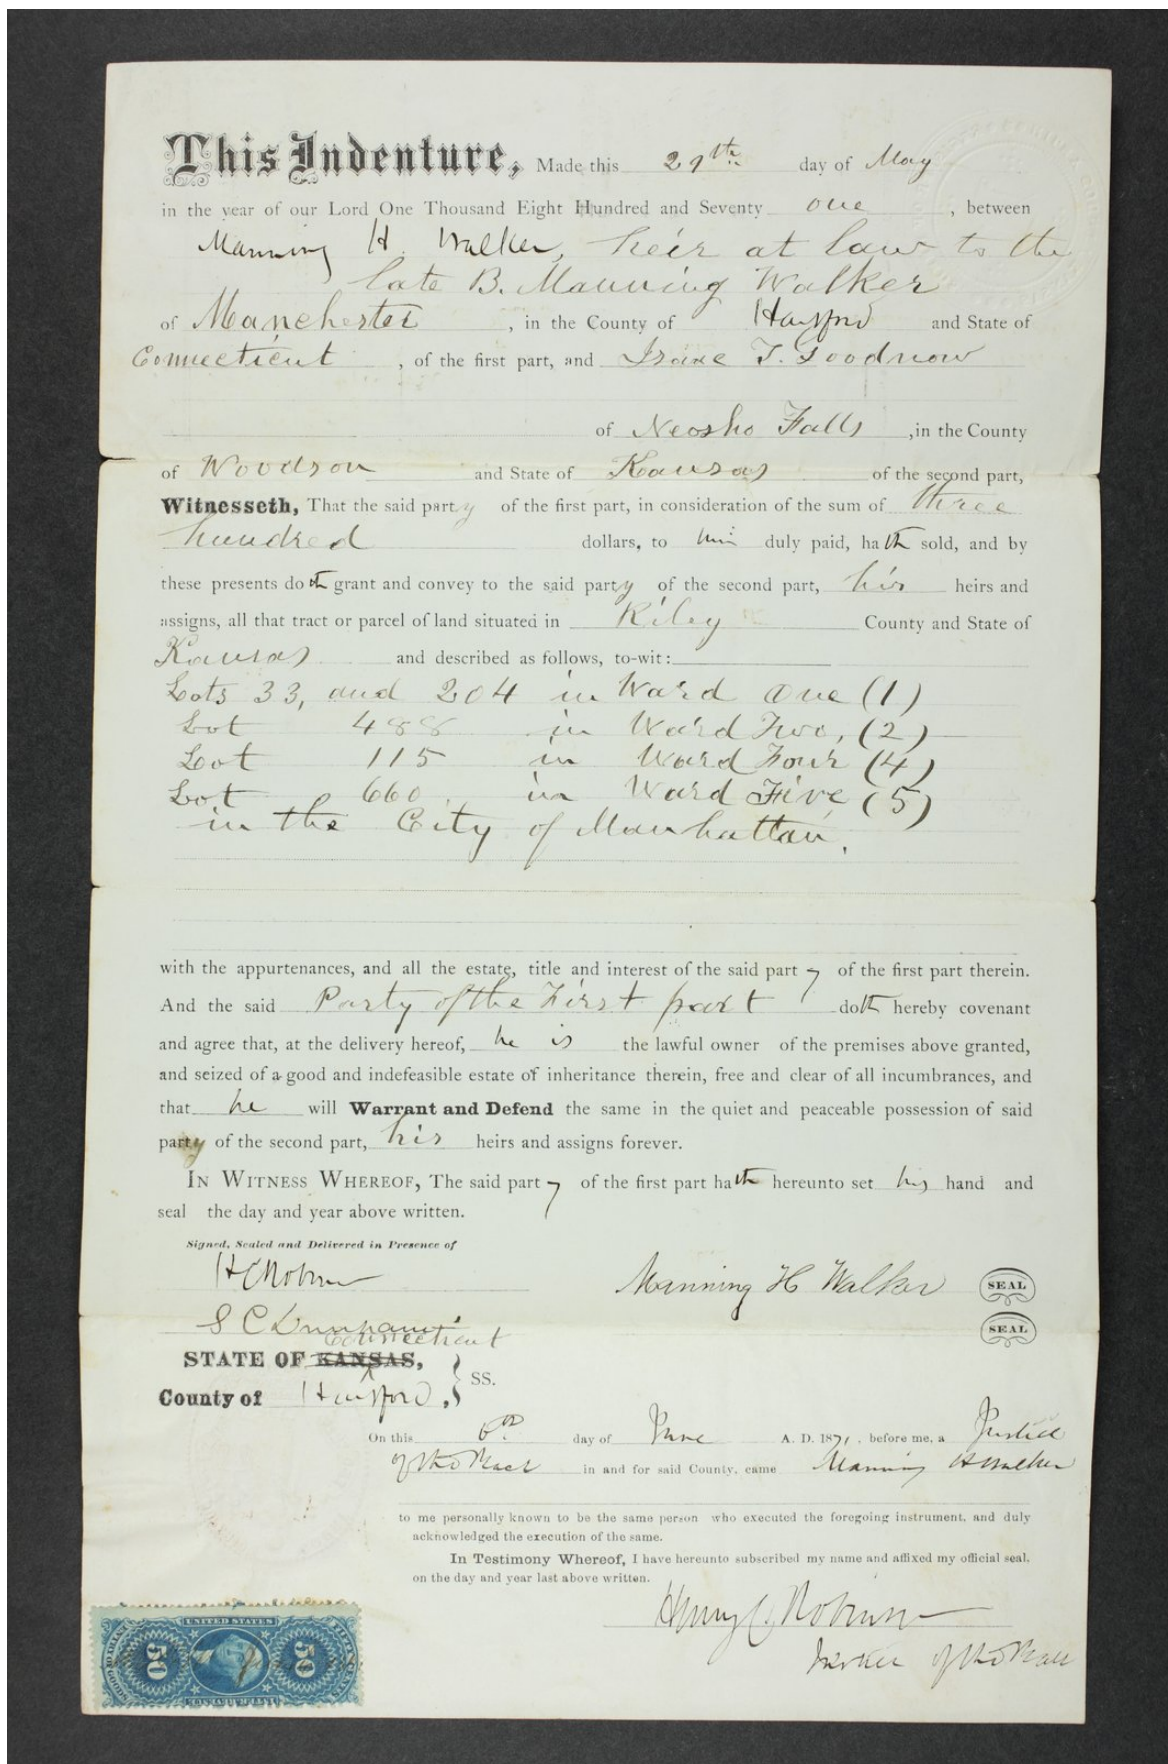 This Indenture, Made this 29th day of May
in the year of our Lord One Thousand Eight Hundred and Seventy one, between
Manning H. Walker, heir at law to the
late B. Manning Walker
of Manchester, in the County of Hartford and State of
Connecticut, of the first part, and Isaac T. Goodnow
of Neosho Falls, in the County
of Woodson and State of Kansas of the second part,
Witnesseth, That the said party of the first part, in consideration of the sum of three
hundred dollars, to him duly paid, hath sold, and by
these presents doth grant and convey to the said party of the second part, his heirs and
assigns, all that tract or parcel of land situated in Riley County and State of
Kansas and described as follows, to-wit:
Lots 33, and 204 in Ward One (1)
Lot 488 in Ward Two, (2)
Lot 115 in Ward Four (4)
Lot 660 in Ward Five (5)
in the City of Manhattan.
with the appurtenances, and all the estate, title and interest of the said party of the first part therein.
And the said Party of the First part doth hereby covenant
and agree that, at the delivery hereof, he is the lawful owner of the premises above granted,
and seized of a good and indefeasible estate of inheritance therein, free and clear of all incumbrances, and
that he will Warrant and Defend the same in the quiet and peaceable possession of said
party of the second part, his heirs and assigns forever.
In Witness Whereof, The said party of the first part hath hereunto set his hand and
seal the day and year above written.
Signed, Sealed and Delivered in Presence of
H C Robinson
Manning H Walker SEAL
S C Dunham
SEAL
Connecticut
STATE OF KANSAS,
County of Hartford, } SS.
On this 6th day of June A. D. 1871, before me, a Justice
of the Peace in and for said County, came Manning H Walker
to me personally known to be the same person who executed the foregoing instrument, and duly
acknowledged the execution of the same.
In Testimony Whereof, I have hereunto subscribed my name and affixed my official seal,
on the day and year last above written.
Henry C. Robinson
Justice of the Peace
UNITED STATES
50 50
INTER. REVENUE